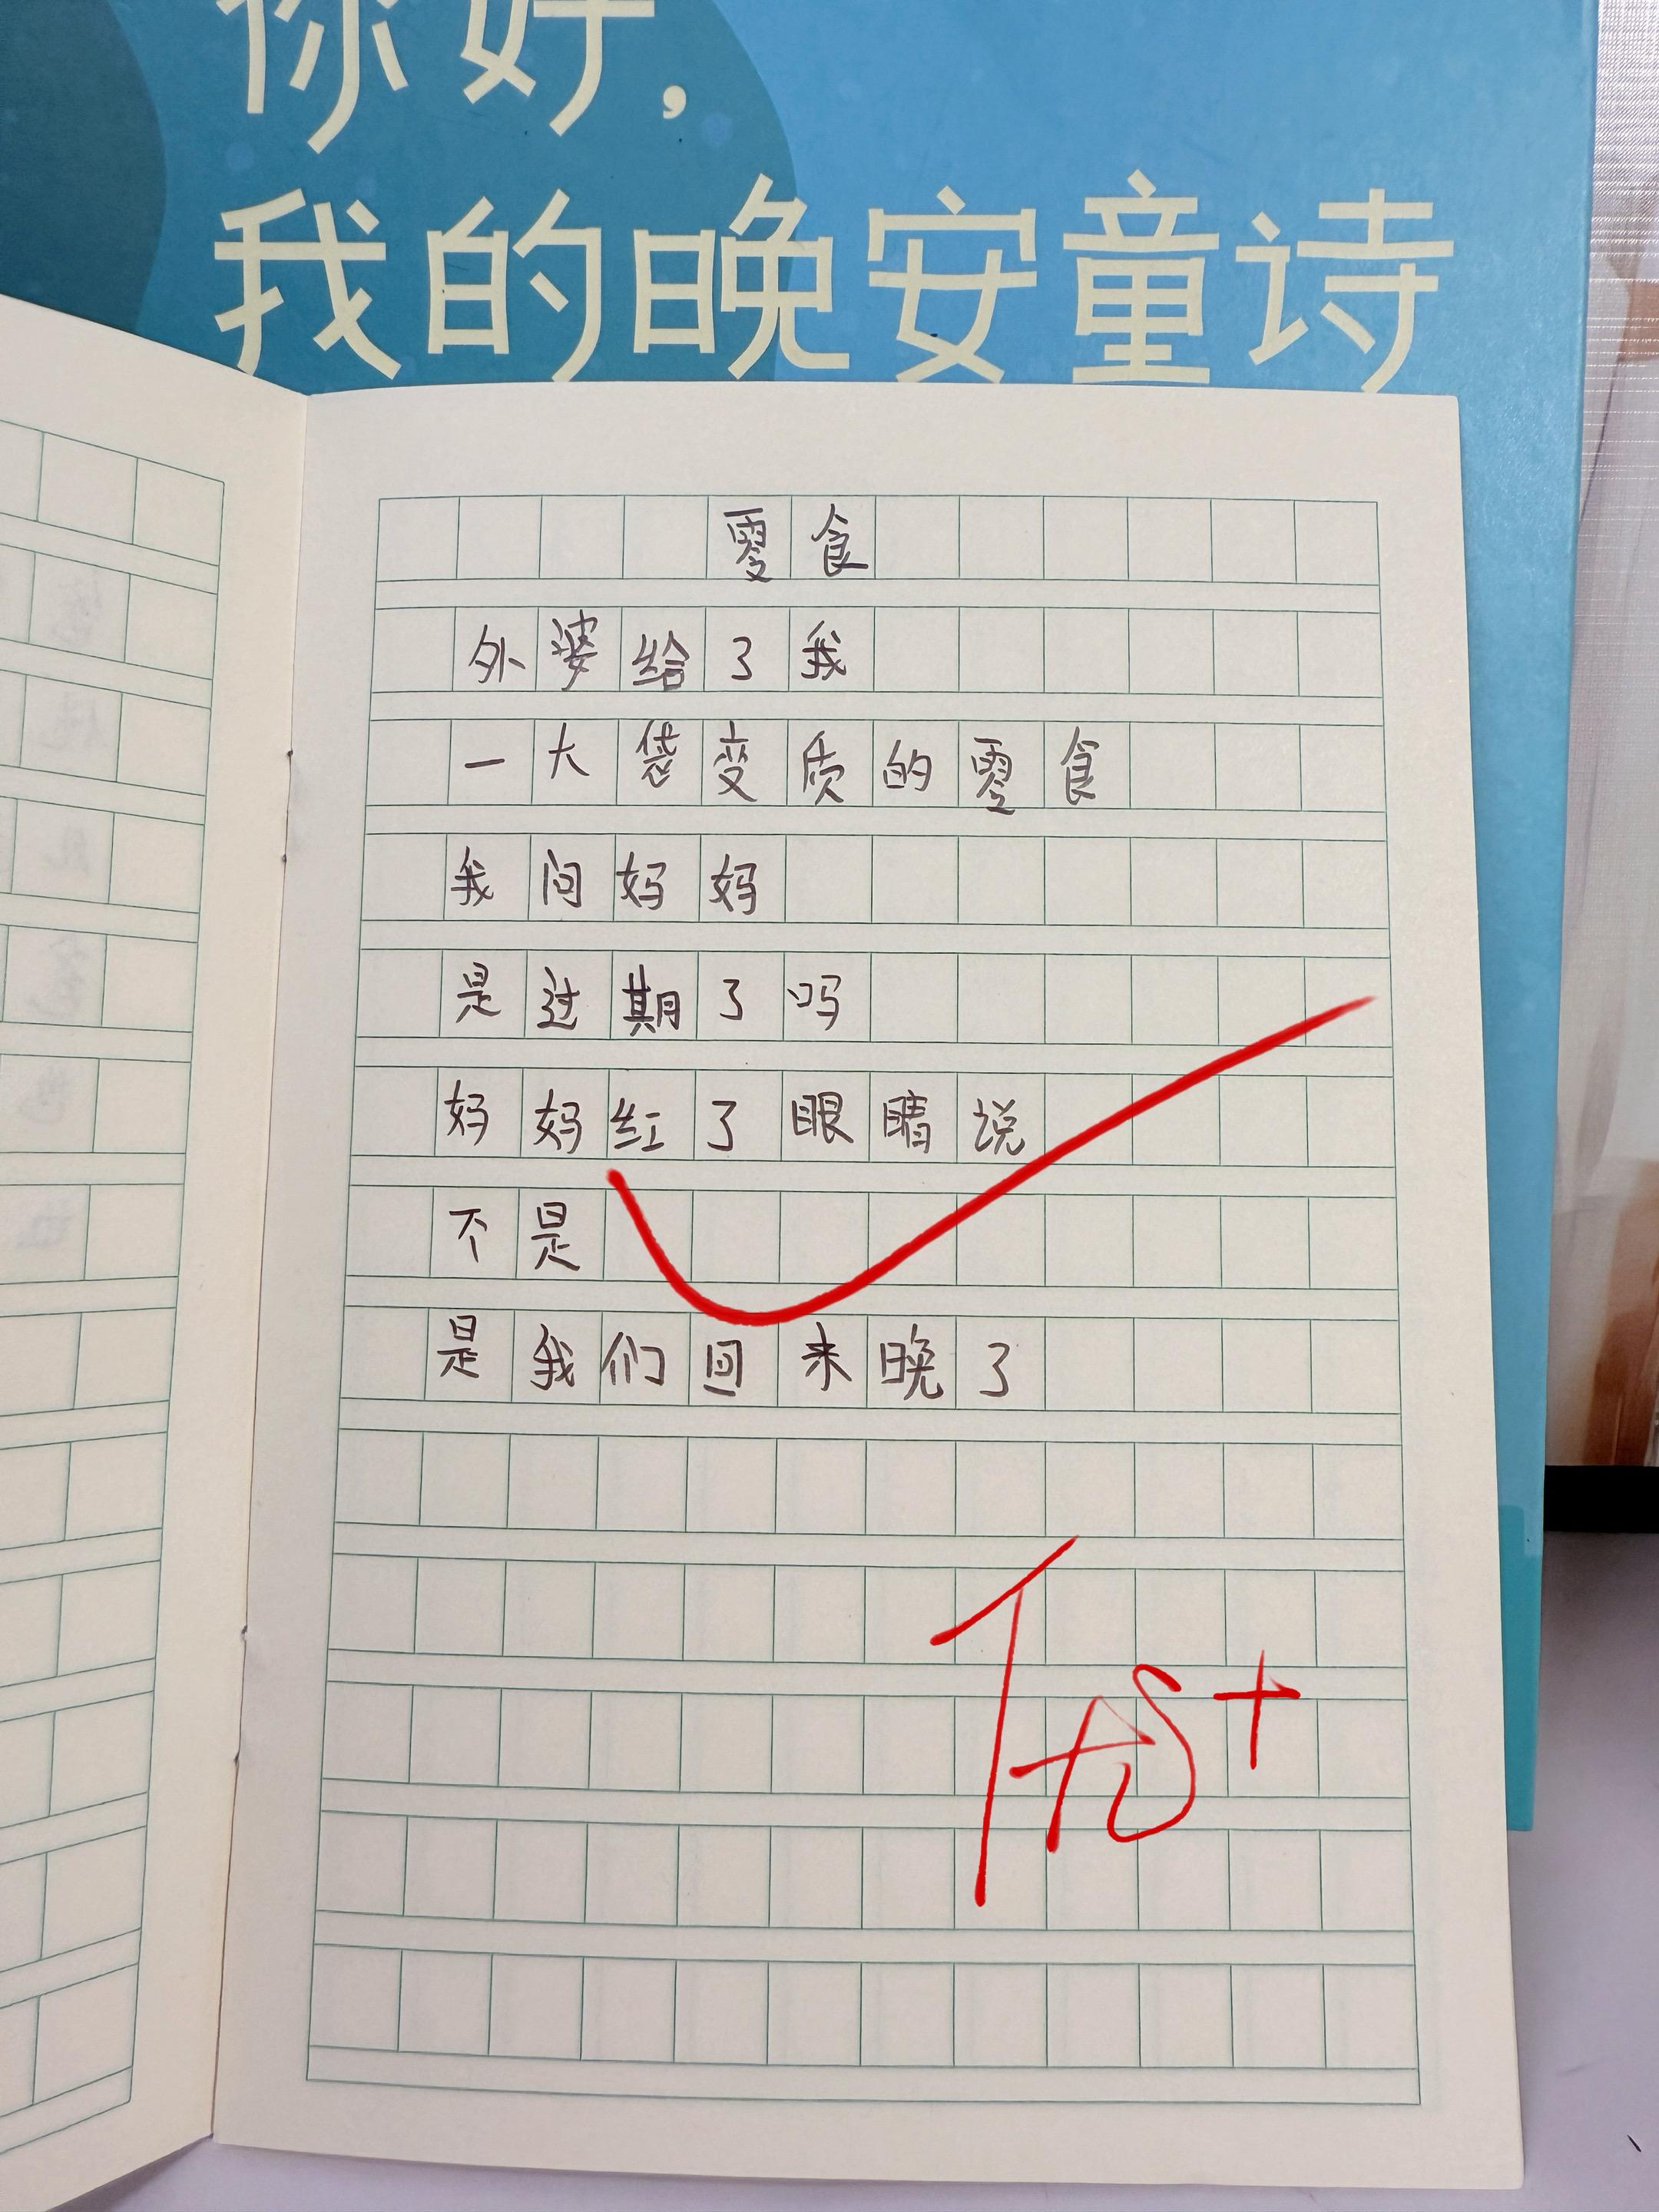 你好,
我的晚安童诗
零食
外婆给了我
一大袋变质的零食
我问妈妈
是过期了吗
妈妈红了眼睛说
不是
是我们回来晚了